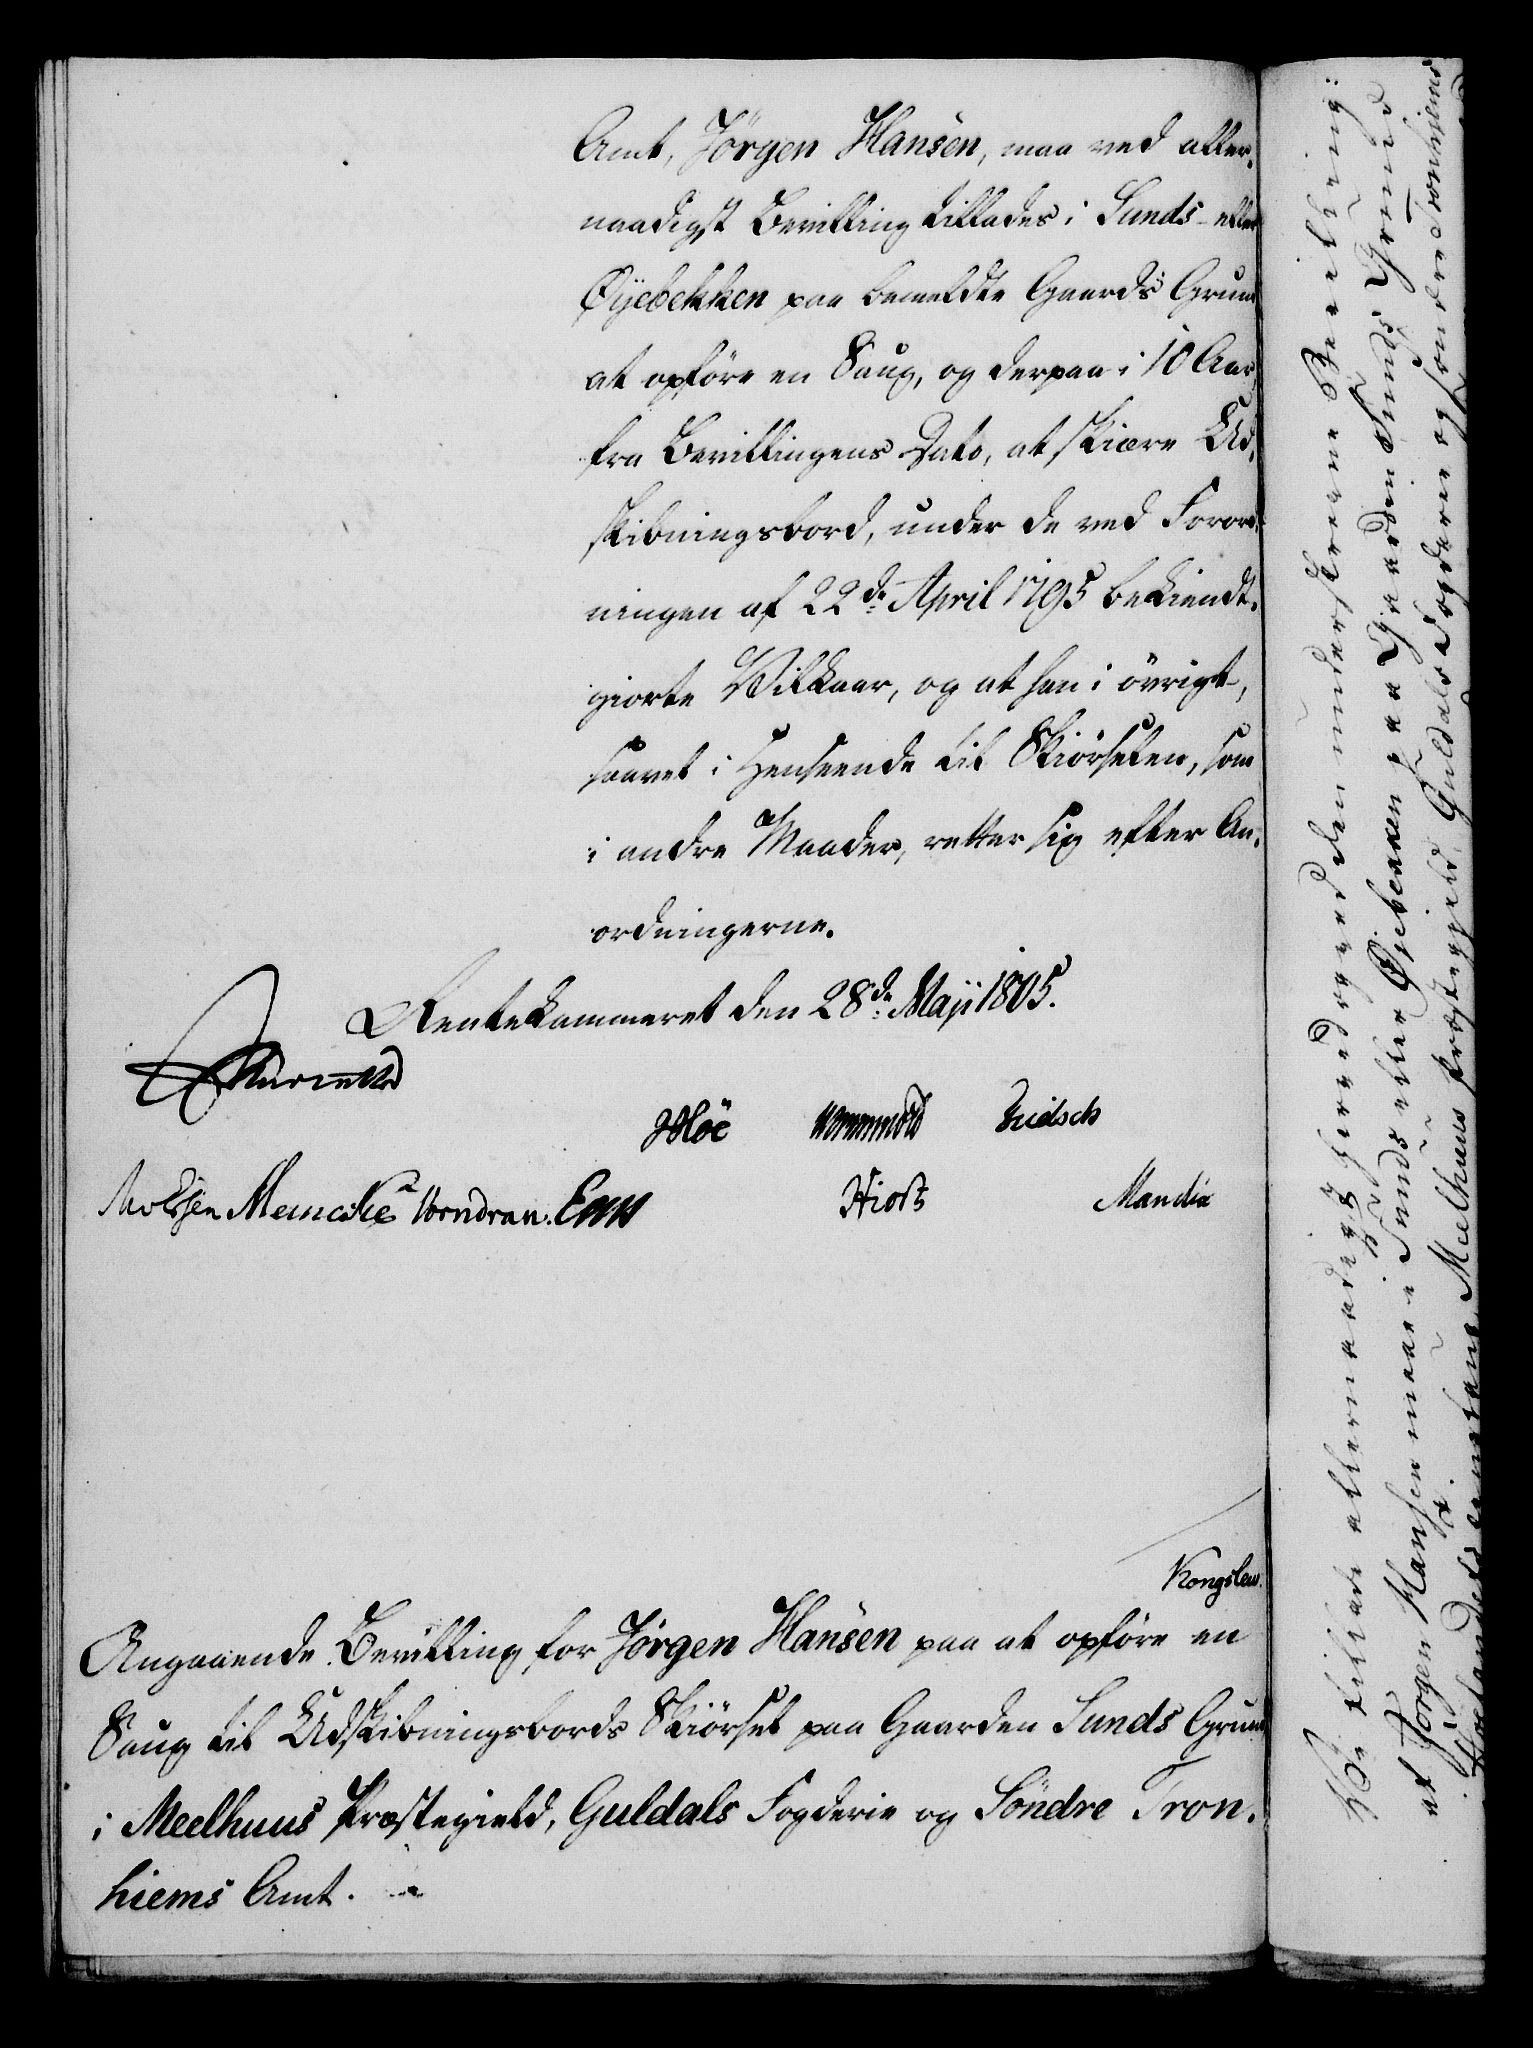 Amt, Jörgen Hansen, maa ved aller-
naadigst Bevilling tillades i Sunds- eller
Øyebekken paa bemeldte Gaards Grund
at opföre en Saug, og derpaa i 10 Aar,
fra Bevillingens Dato, at skiære Ud-
skibningsbord, under de ved Forord-
ningen af 22de April 1795 bekiendt-
giorte Vilkaar, og at han i övrigt,
saavel i Henseende til Skiörselen, som
i andre Maader, retter sig efter An-
ordningerne.
Rentekammeret den 28de Maji 1805.
Möe Wormskiold
Meincke Vorndran. Hiort Manthe
Kongslew.
Angaaende Bevilling for Jörgen Hansen paa at opföre en
Saug til Udskibningsbords Skiörsel paa Gaarden Sunds Grund
i Meelhuus Præstegield, Guldals Fogderie og Söndre Tron-
hiems Amt.
Vi tillade allernaadigst herved og ved den underskrevne Bevilling:
at Jörgen Hansen maae i Sunds eller Öyebekken paa Gaarden Sunds Grund
Meelhuus Præstegield, Guldals Fogderie og Söndre Tronhiems